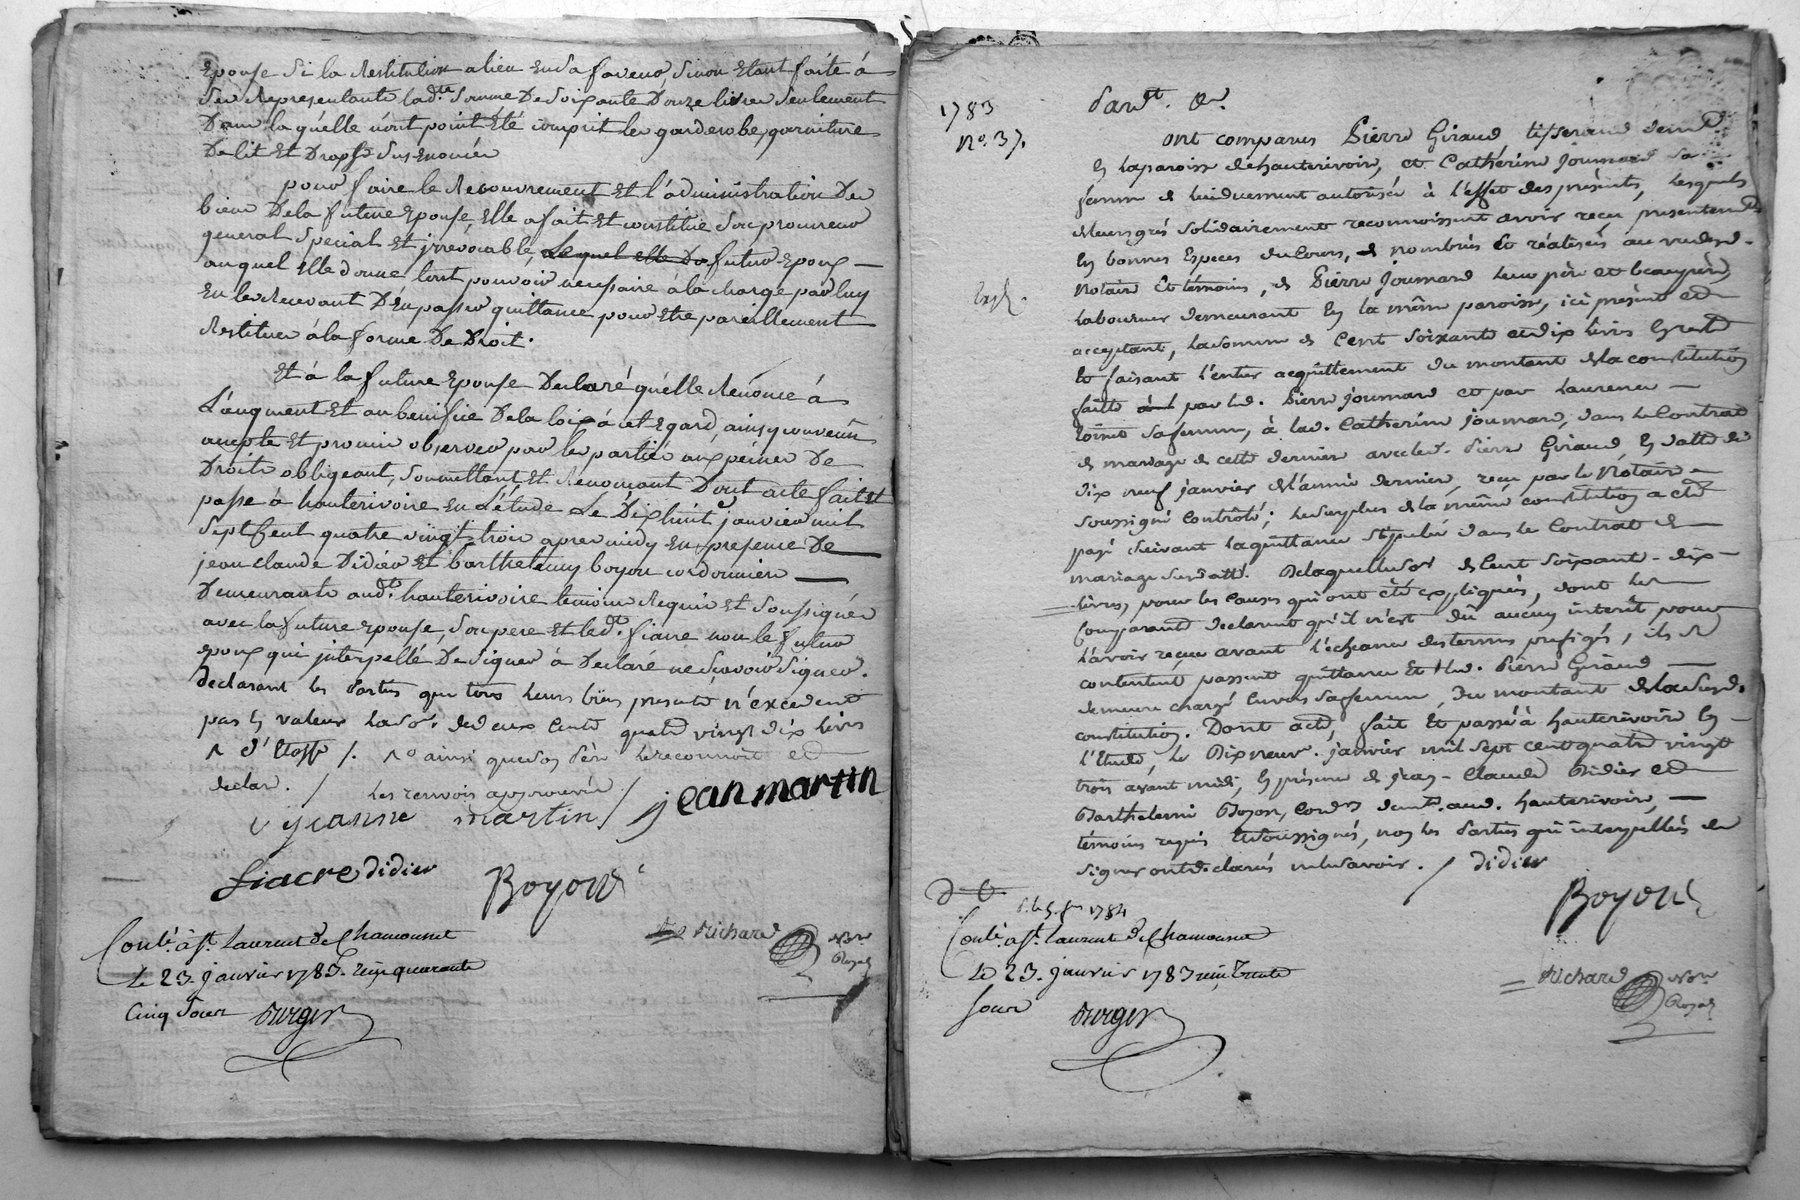 Epouse si la Restitution a lieu en sa faveur, sinon Etant faite á
ses Representants lad.te Somme De Soixante Douze livres seulement
Dans la quélle n'ont point Eté compris les garderobe, garniture
De lit Et Draps sus Enoncés
pour faire le Recouvrement Et l'administration Des
biens Dela future Epouse, Elle a fait Et constitué son procureur
general special Et jrrevocable, Le quel elle Do futur Epoux —
auquel Elle donne tout pouvoir necessaire á la charge par luy
En les Recevant D'En passer quittance pour Etre pareillement
Restituer á la forme De Droit.
Et á la future Epouse Declaré qu'élle Renonce á
L'augment Et au benifice De la loix á cet Egard, ainsy convenu
accepté Et promis observer par les parties aux peines De
Droits obligeant, Soumettant Et Renonçant Dont acte fait Et
passé à hauterivoire En L'étude Le Dixhuit janvier mil
Sept Cent quatre vingt trois apres midy En presence De
jean claude Didier Et barthelemy boyon cordonnier —
Demeurants aud.t hauterivoire temoins Requis Et Soussignés
avec la future Epouse, Son pere Et led.t fiacre non le futur
epoux qui jnterpellé De Signer à Declaré ne Scavoir Signer.
declarant les Parties que tous leurs biens presents n'excedent
pas en valeur la so.e de deux Cents quatre vingt dix livres
declar. / les renvois approuvés /
jeanne martin / jean martin
fiacre didier
Boyon
Richard Not.re Royal
Conté. à St. Laurent de Chamousset
le 23. janvier 1783. reçu quarante
Cinq Sous Durger
1783
N.o 37.
Pardt. &c.
ont comparus Pierre Giraud tisserand demt
en la paroisse de hauterivoire, et Catherine Joumard sa
femme de lui duement autorisée à l'effet des présentes, lesquels
de leurs grés solidairement reconnoissent avoir recu presentement
en bonnes Especes du Cours, nombrés et réalisés au vu dud.
Notaire et témoins, de Pierre Joumard leur père et beaupère,
laboureur demeurant en la même paroisse, ici présent et
acceptant, la somme de Cent soixante et dix livres
et faisant l'entier acquittement du montant de la constitution
faitte par led. Pierre joumard et par Laurence —
sa femme, à lad. Catherine joumard, dans le Contrat
de mariage de cette derniere avec led. Pierre Giraud, en datte du
dix neuf janvier de l'année derniere, reçu par le Notaire
soussigné Contrôlé; le surplus de la même constitution a été
payé suivant la quittance stipulée dans le Contrat de
mariage susdatté. De laquelle so.e de Cent soixante-dix
livres, pour les causes qui ont été expliquées, dont les
Comparants declarent qu'il n'est dû aucun interêt pour
l'avoir reçue avant l'échéance des termes prefigés, ils se
contentent passent quittance Et led. Pierre Giraud —
demeure chargé envers sa femme, du montant de lasusd.
constitution. Dont acte, fait et passé à hauterivoire en
l'Etude, le Dix neuf janvier mil sept cent quatre vingt
trois avant midi, en présence de jean-Claude Didier et
Barthelemi Boyon, cord.r demts. aud. hauterivoire, —
témoins requis et soussignés, non les Parties qui interpellées de
signer ont declarés ne le savoir. / didier
Boyon
Conté. à St. Laurent de Chamousset
le 23. janvier 1783 reçu trente
sous Durger
Richard Not.re Royal